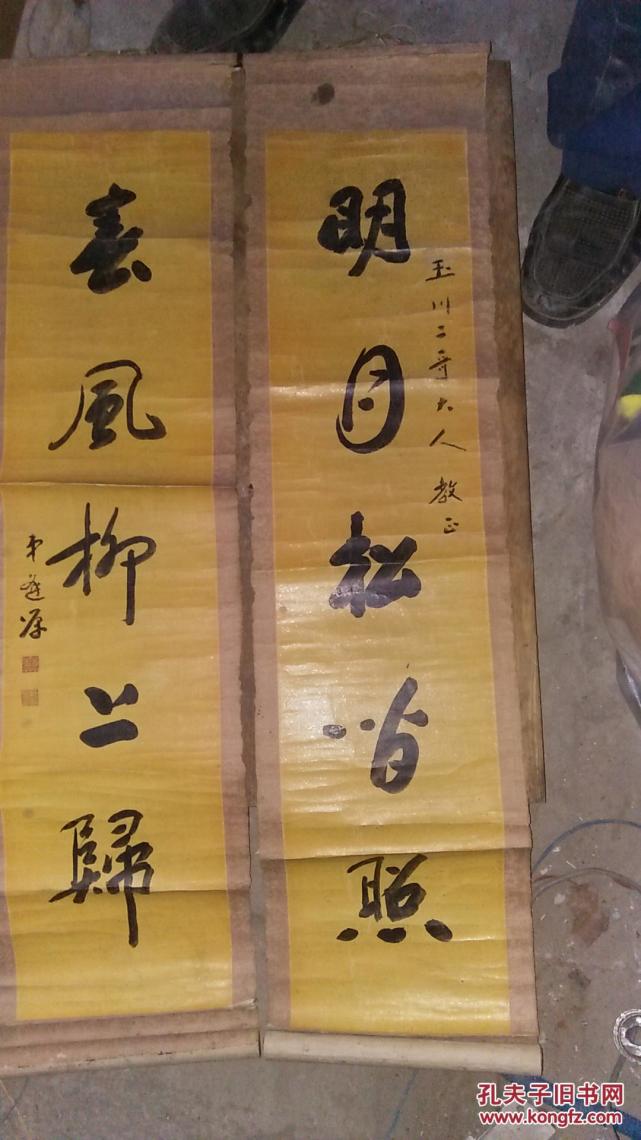 玉川二哥大人教正
明月松间照
春風柳上歸
弟
孔夫子旧书网
www.kongfz.com